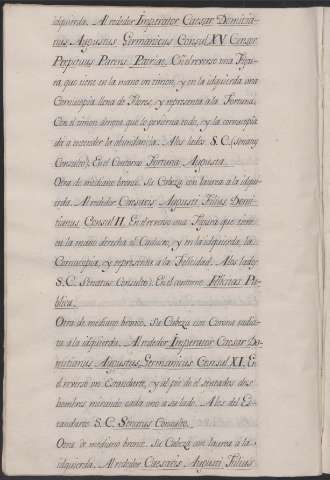 izquierda. Al rededor Imperator Caesar Domitia-
nus Augustus Germanicus Consul XV. Censor
Perpetuus Parens Patriae. En el reverso una Figu-
ra, que tiene en la mano un timon, y en la izquierda una
Cornucopia llena de Flores, y representa a la Fortuna.
Con el timon denota que lo govierna todo, y la cornucopia
dá a entender la abundancia. A los lados S. C. (Senatus
Consulto). En el Contorno Fortuna Augusta.
Otra de mediano bronce. Su Cabeza con laurea a la izqui-
erda. Al rededor Caesaris Augusti Filius Domi-
tianus Consul II. En el reverso una Figura que tiene
en la mano derecha el Caduceo, y en la izquierda la
Cornucopia, y representa a la Felicidad. A los lados
S. C. Senatus Consulto). En el contorno Felicitas Pu-
blica.
Otra de mediano bronce. Su Cabeza con Corona radia-
ta a la izquierda. Al rededor Imperator Caesar Do-
mitianus Augustus Germanicus Consul XI. En
el reverso un Estandarte, y al pie de el sentados dos
hombres mirando cada uno a su lado. A los del Es-
tandarte S. C. Senatus Consulto.
Otra de mediano bronce. Su Cabeza con laurea a la
izquierda. Al rededor Caesaris Augusti Filius